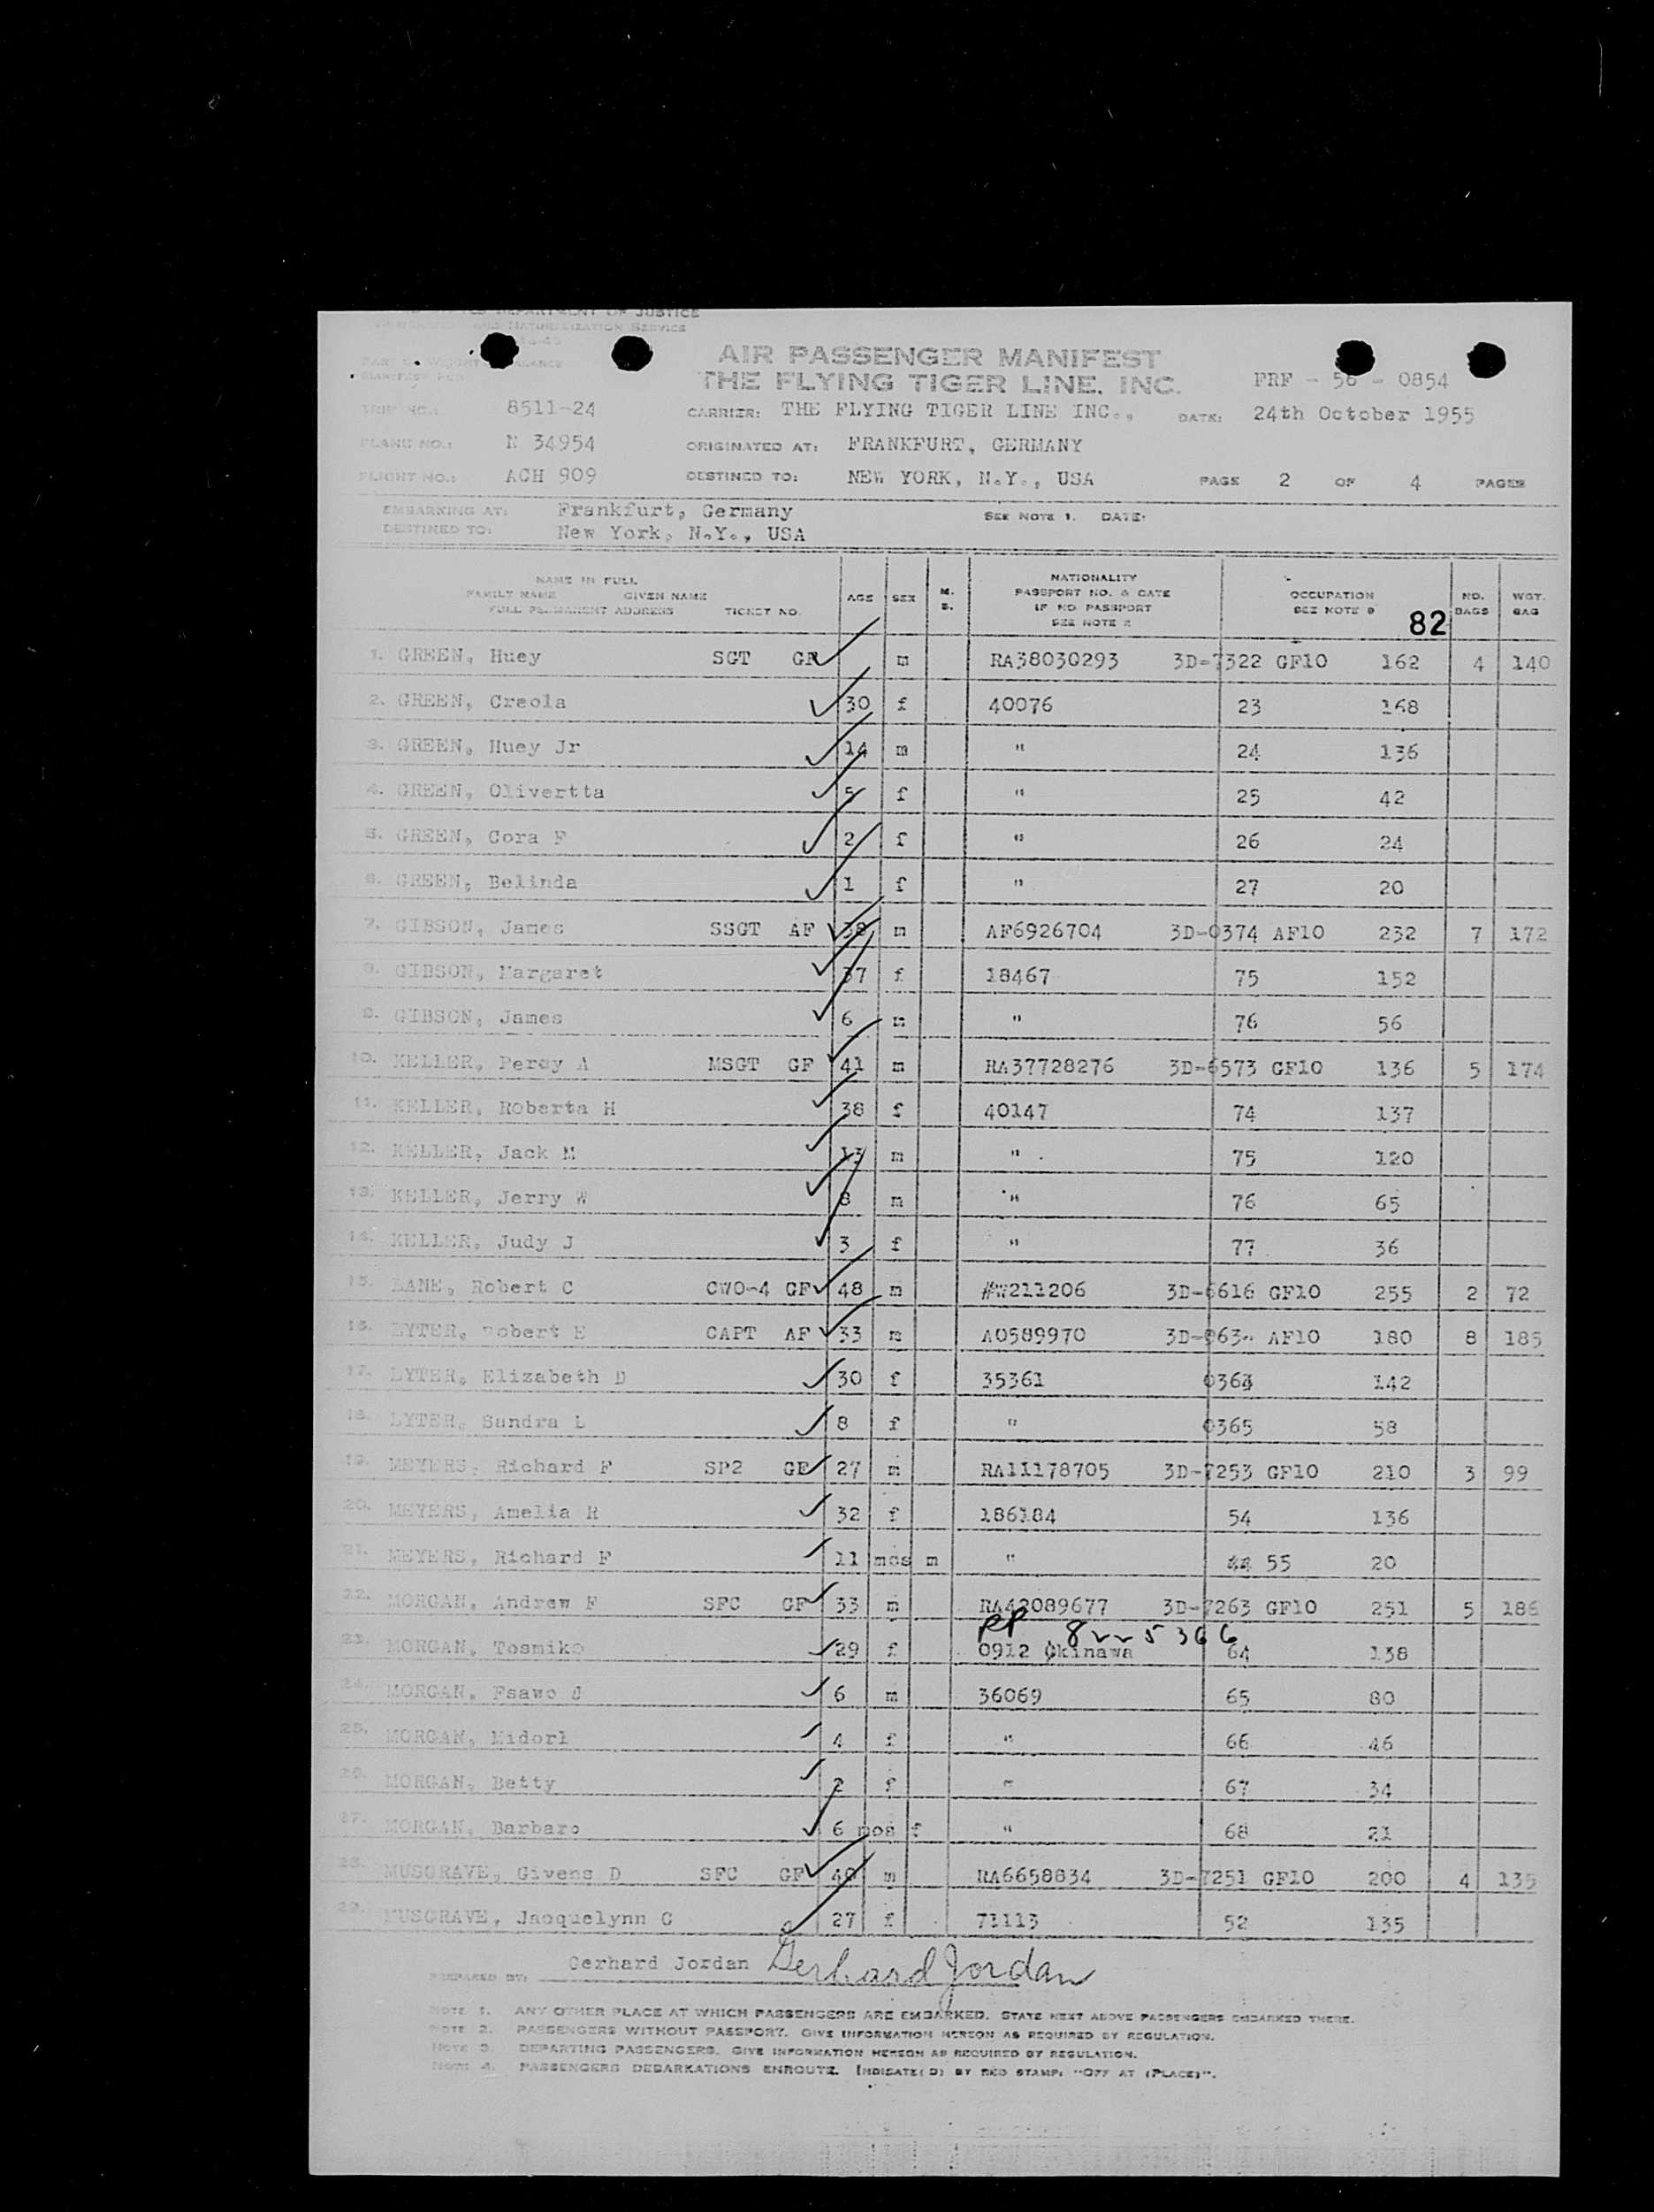 DEPARTMENT OF JUSTICE
AND NATURALIZATION SERVICE
AIR PASSENGER MANIFEST
THE FLYING TIGER LINE, INC.
FRF - 56 - 0854
TRIP NO.: 8511-24 CARRIER: THE FLYING TIGER LINE INC., DATE: 24th October 1955
PLANE NO.: N 34954 ORIGINATED AT: FRANKFURT, GERMANY
FLIGHT NO.: ACH 909 DESTINED TO: NEW YORK, N.Y., USA PAGE 2 OF 4 PAGES
EMBARKING AT: Frankfurt, Germany SEE NOTE 1. DATE:
DESTINED TO: New York, N.Y., USA
NAME IN FULL
FAMILY NAME GIVEN NAME
FULL PERMANENT ADDRESS TICKET NO.
AGE SEX M. S.
NATIONALITY
PASSPORT NO. & DATE
IF NO PASSPORT
SEE NOTE 2
OCCUPATION
SEE NOTE
82
NO. BAGS
WGT. BAG
1. GREEN, Huey SGT GF m RA38030293 3D-7322 GF10 162 4 140
2. GREEN, Creola 30 f 40076 23 168
3. GREEN, Huey Jr 14 m " 24 136
4. GREEN, Olivertta 5 f " 25 42
5. GREEN, Cora F 2 f " 26 24
6. GREEN, Belinda 1 f " 27 20
7. GIBSON, James SSGT AF 38 m AF6926704 3D-0374 AF10 232 7 172
8. GIBSON, Margaret 37 f 18467 75 152
9. GIBSON, James 6 m " 76 56
10. KELLER, Percy A MSGT GF 41 m RA37728276 3D-6573 GF10 136 5 174
11. KELLER, Roberta H 38 f 40147 74 137
12. KELLER, Jack M 13 m " 75 120
13. KELLER, Jerry W 8 m " 76 65
14. KELLER, Judy J 3 f " 77 36
15. LANE, Robert C CWO-4 GF 48 m #W211206 3D-6616 GF10 255 2 72
16. LYTER, Robert E CAPT AF 33 m AO589970 AF10 180 8 185
17. LYTER, Elizabeth D 30 f 35361 0364 142
18. LYTER, Sandra L 8 f " 0365 58
19. MEYERS, Richard F SP2 GF 27 m RA11178705 3D-7253 GF10 210 3 99
20. MEYERS, Amelia R 32 f 186184 54 136
21. MEYERS, Richard F 11 mos m " 55 20
22. MORGAN, Andrew F SFC GF 33 m RA42089677 3D-7263 GF10 251 5 186
PP 8225366
23. MORGAN, Tosmiko 29 f 0912 Okinawa 64 138
24. MORGAN, Fsawo J 6 m 36069 65 80
25. MORGAN, Midori 4 f " 66 46
26. MORGAN, Betty 2 f " 67 34
27. MORGAN, Barbaro 6 mos f " 68 21
28. MUSGRAVE, Givens D SFC GF 40 m RA6658834 3D-7251 GF10 200 4 135
29. MUSGRAVE, Jacquelynn C 27 f 73113 52 135
PREPARED BY: Gerhard Jordan Gerhard Jordan
NOTE 1. ANY OTHER PLACE AT WHICH PASSENGERS ARE EMBARKED. STATE NEXT ABOVE PASSENGERS EMBARKED THERE.
NOTE 2. PASSENGERS WITHOUT PASSPORT. GIVE INFORMATION HEREON AS REQUIRED BY REGULATION.
NOTE 3. DEPARTING PASSENGERS. GIVE INFORMATION HEREON AS REQUIRED BY REGULATION.
NOTE 4. PASSENGERS DEBARKATIONS ENROUTE. INDICATE(D) BY RED STAMP: "OFF AT (PLACE)".